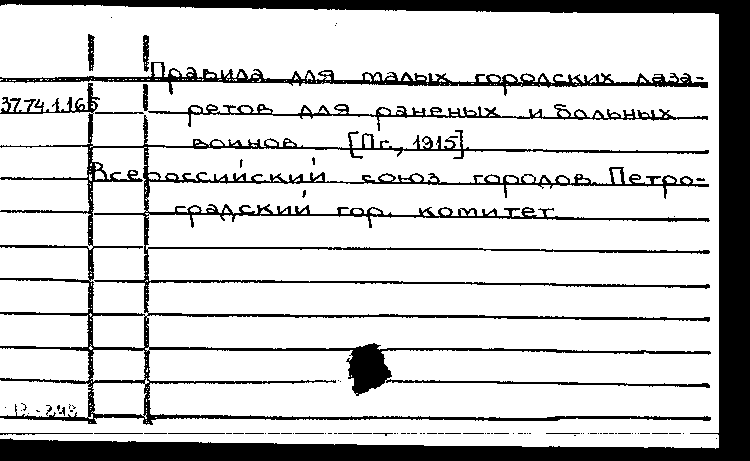 Правила для малых городских лаза-
37.74.1.165 ретов для раненых и больных
воинов. [Пг., 1915].
Всероссийский союз городов. Петро-
градский гор. комитет.